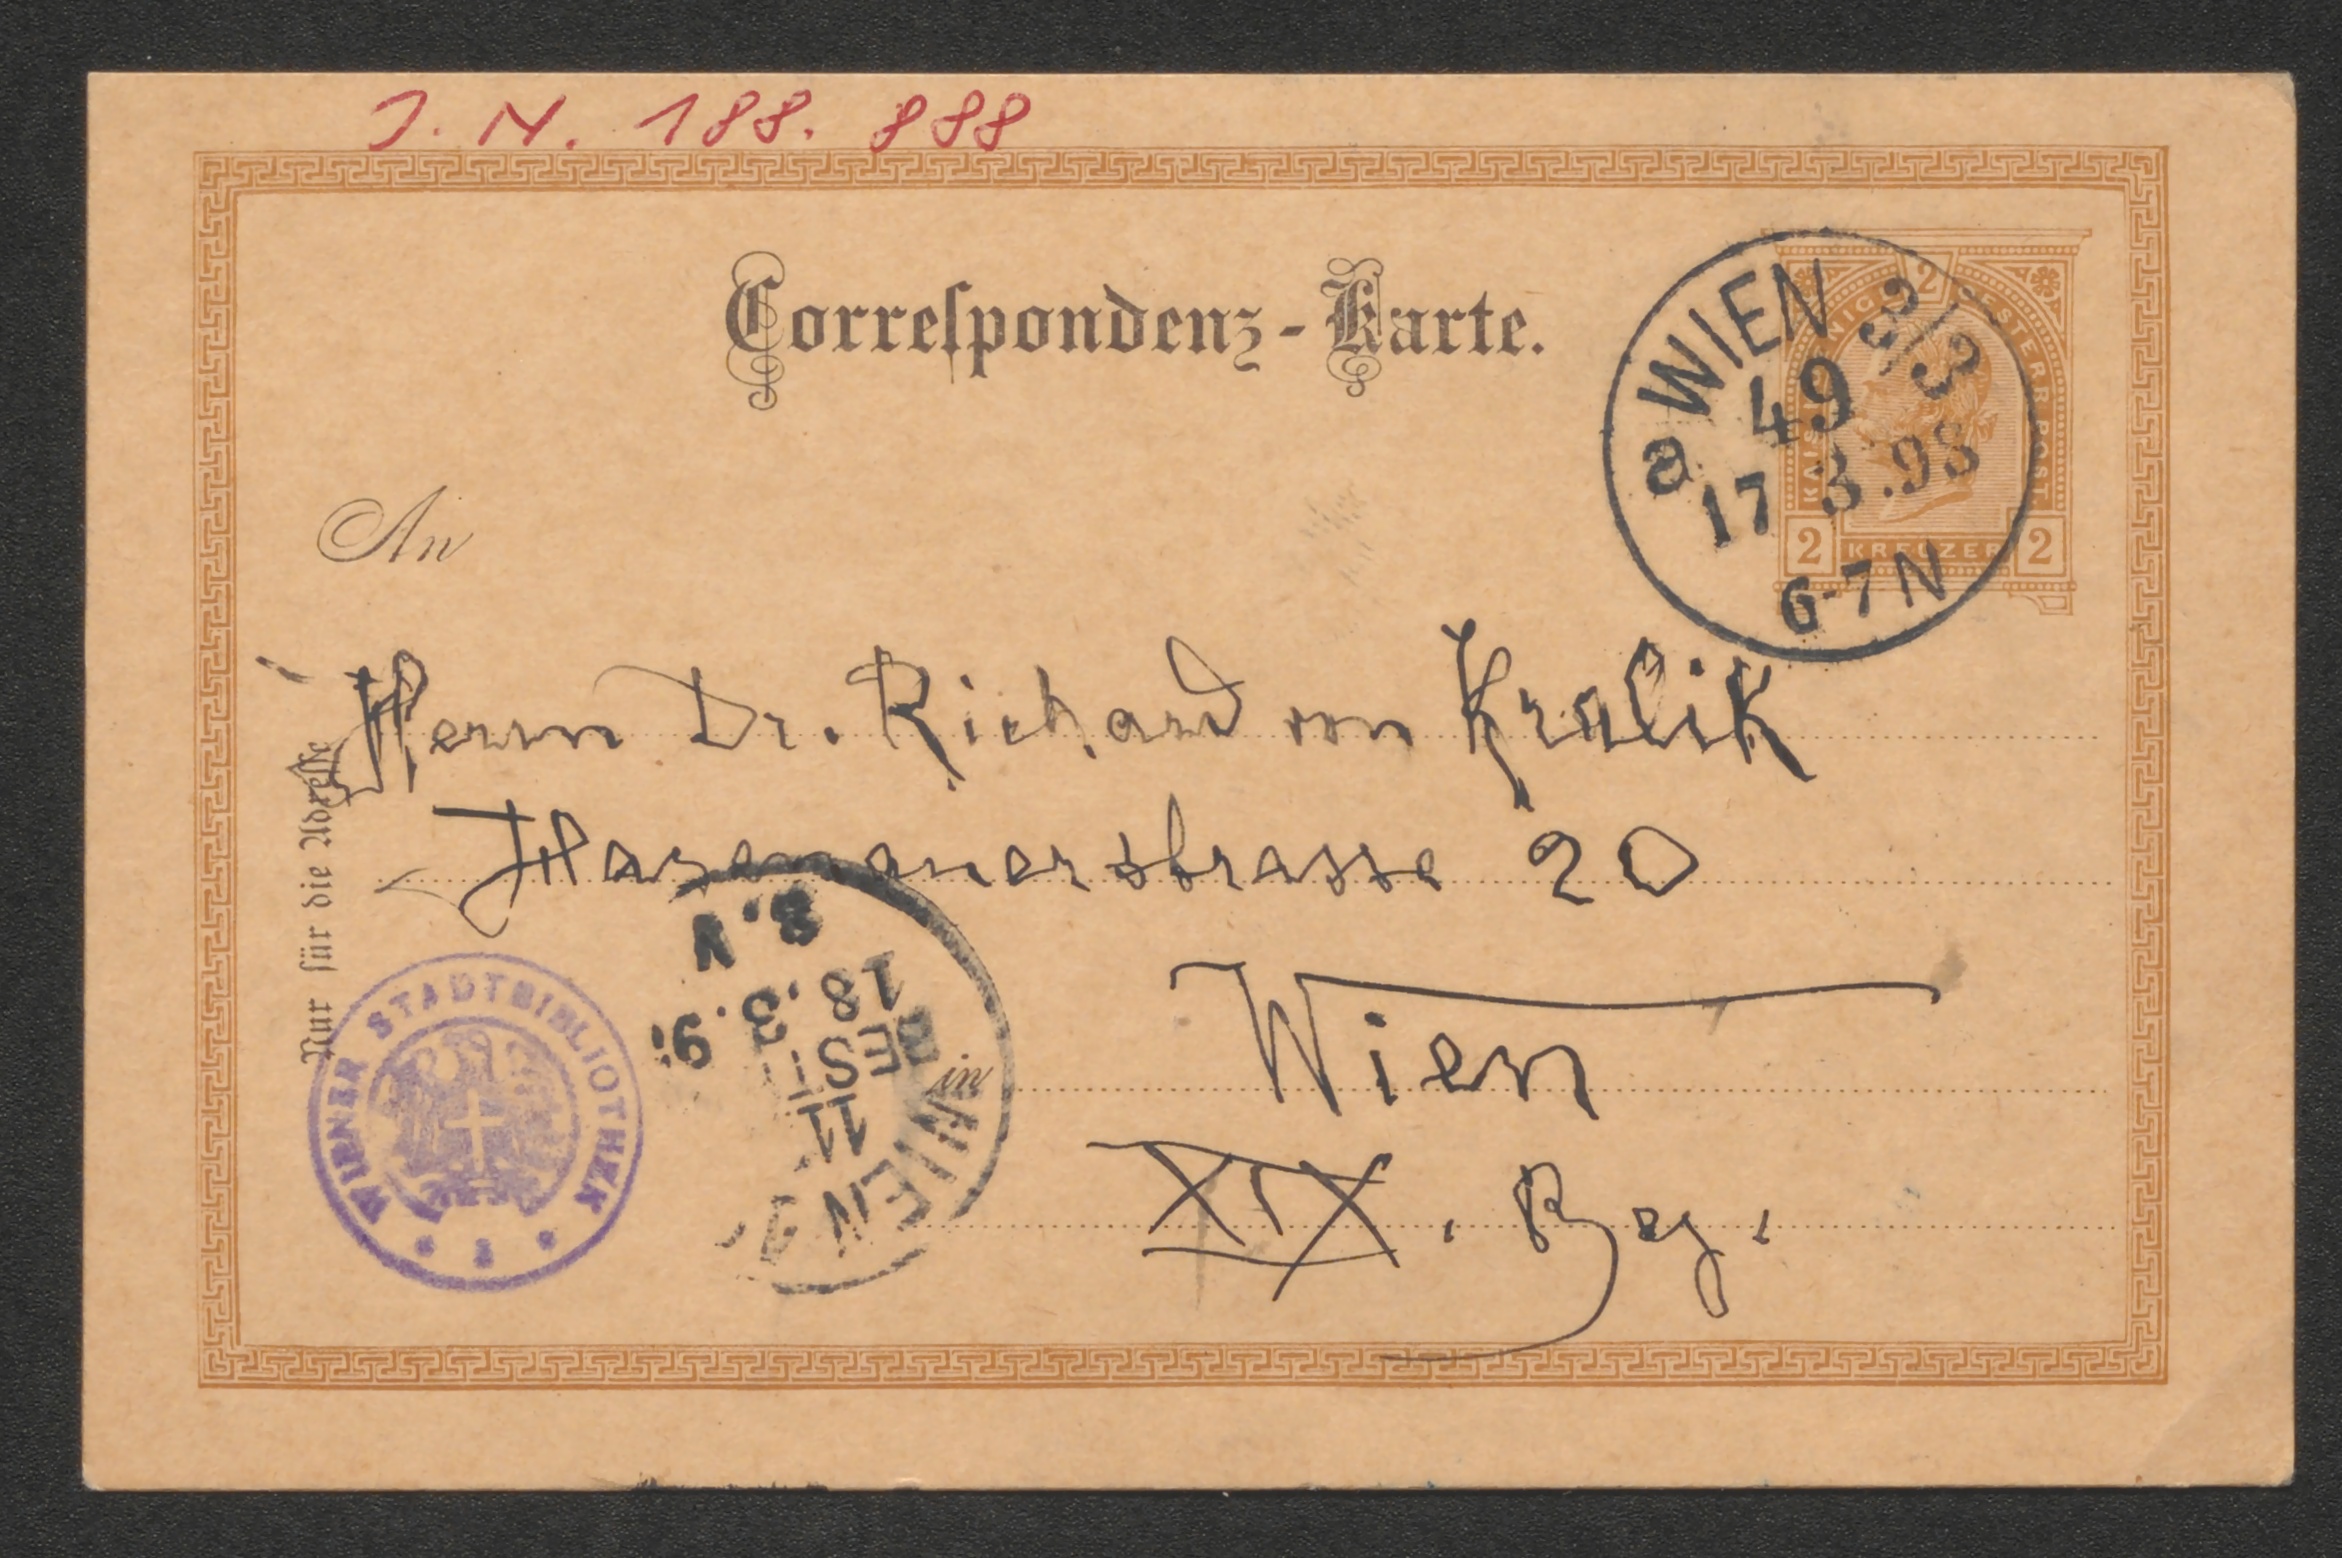 J. N. 188. 888
Correspondenz-Karte.
WIEN 3/3
49
a
17 3.98
6-7N
2
KAIS. KÖNIGL. OESTERR. POST
2 KREUZER 2
An
Herrn Dr. Richard von Kralik
Hasenauerstrasse 20
in Wien
XIX. Bez.
Nur für die Adresse
WIENER STADTBIBLIOTHEK
WIEN
11
BEST
18.3.9
8.V